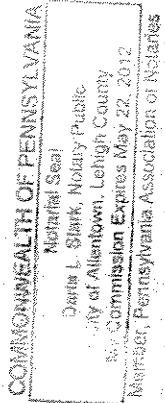 COMMONWEALTH OF PENNSYLVANIA
Notarial Seal
Notary Public
City of Allentown, Lehigh County
My Commission Expires May 22, 2012
Member, Pennsylvania Association of Notaries